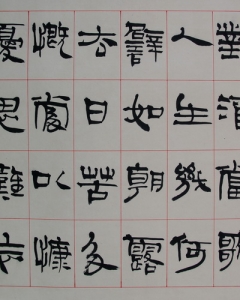 對酒當歌
人生幾何
譬如朝露
去日苦多
慨當以慷
憂思難忘